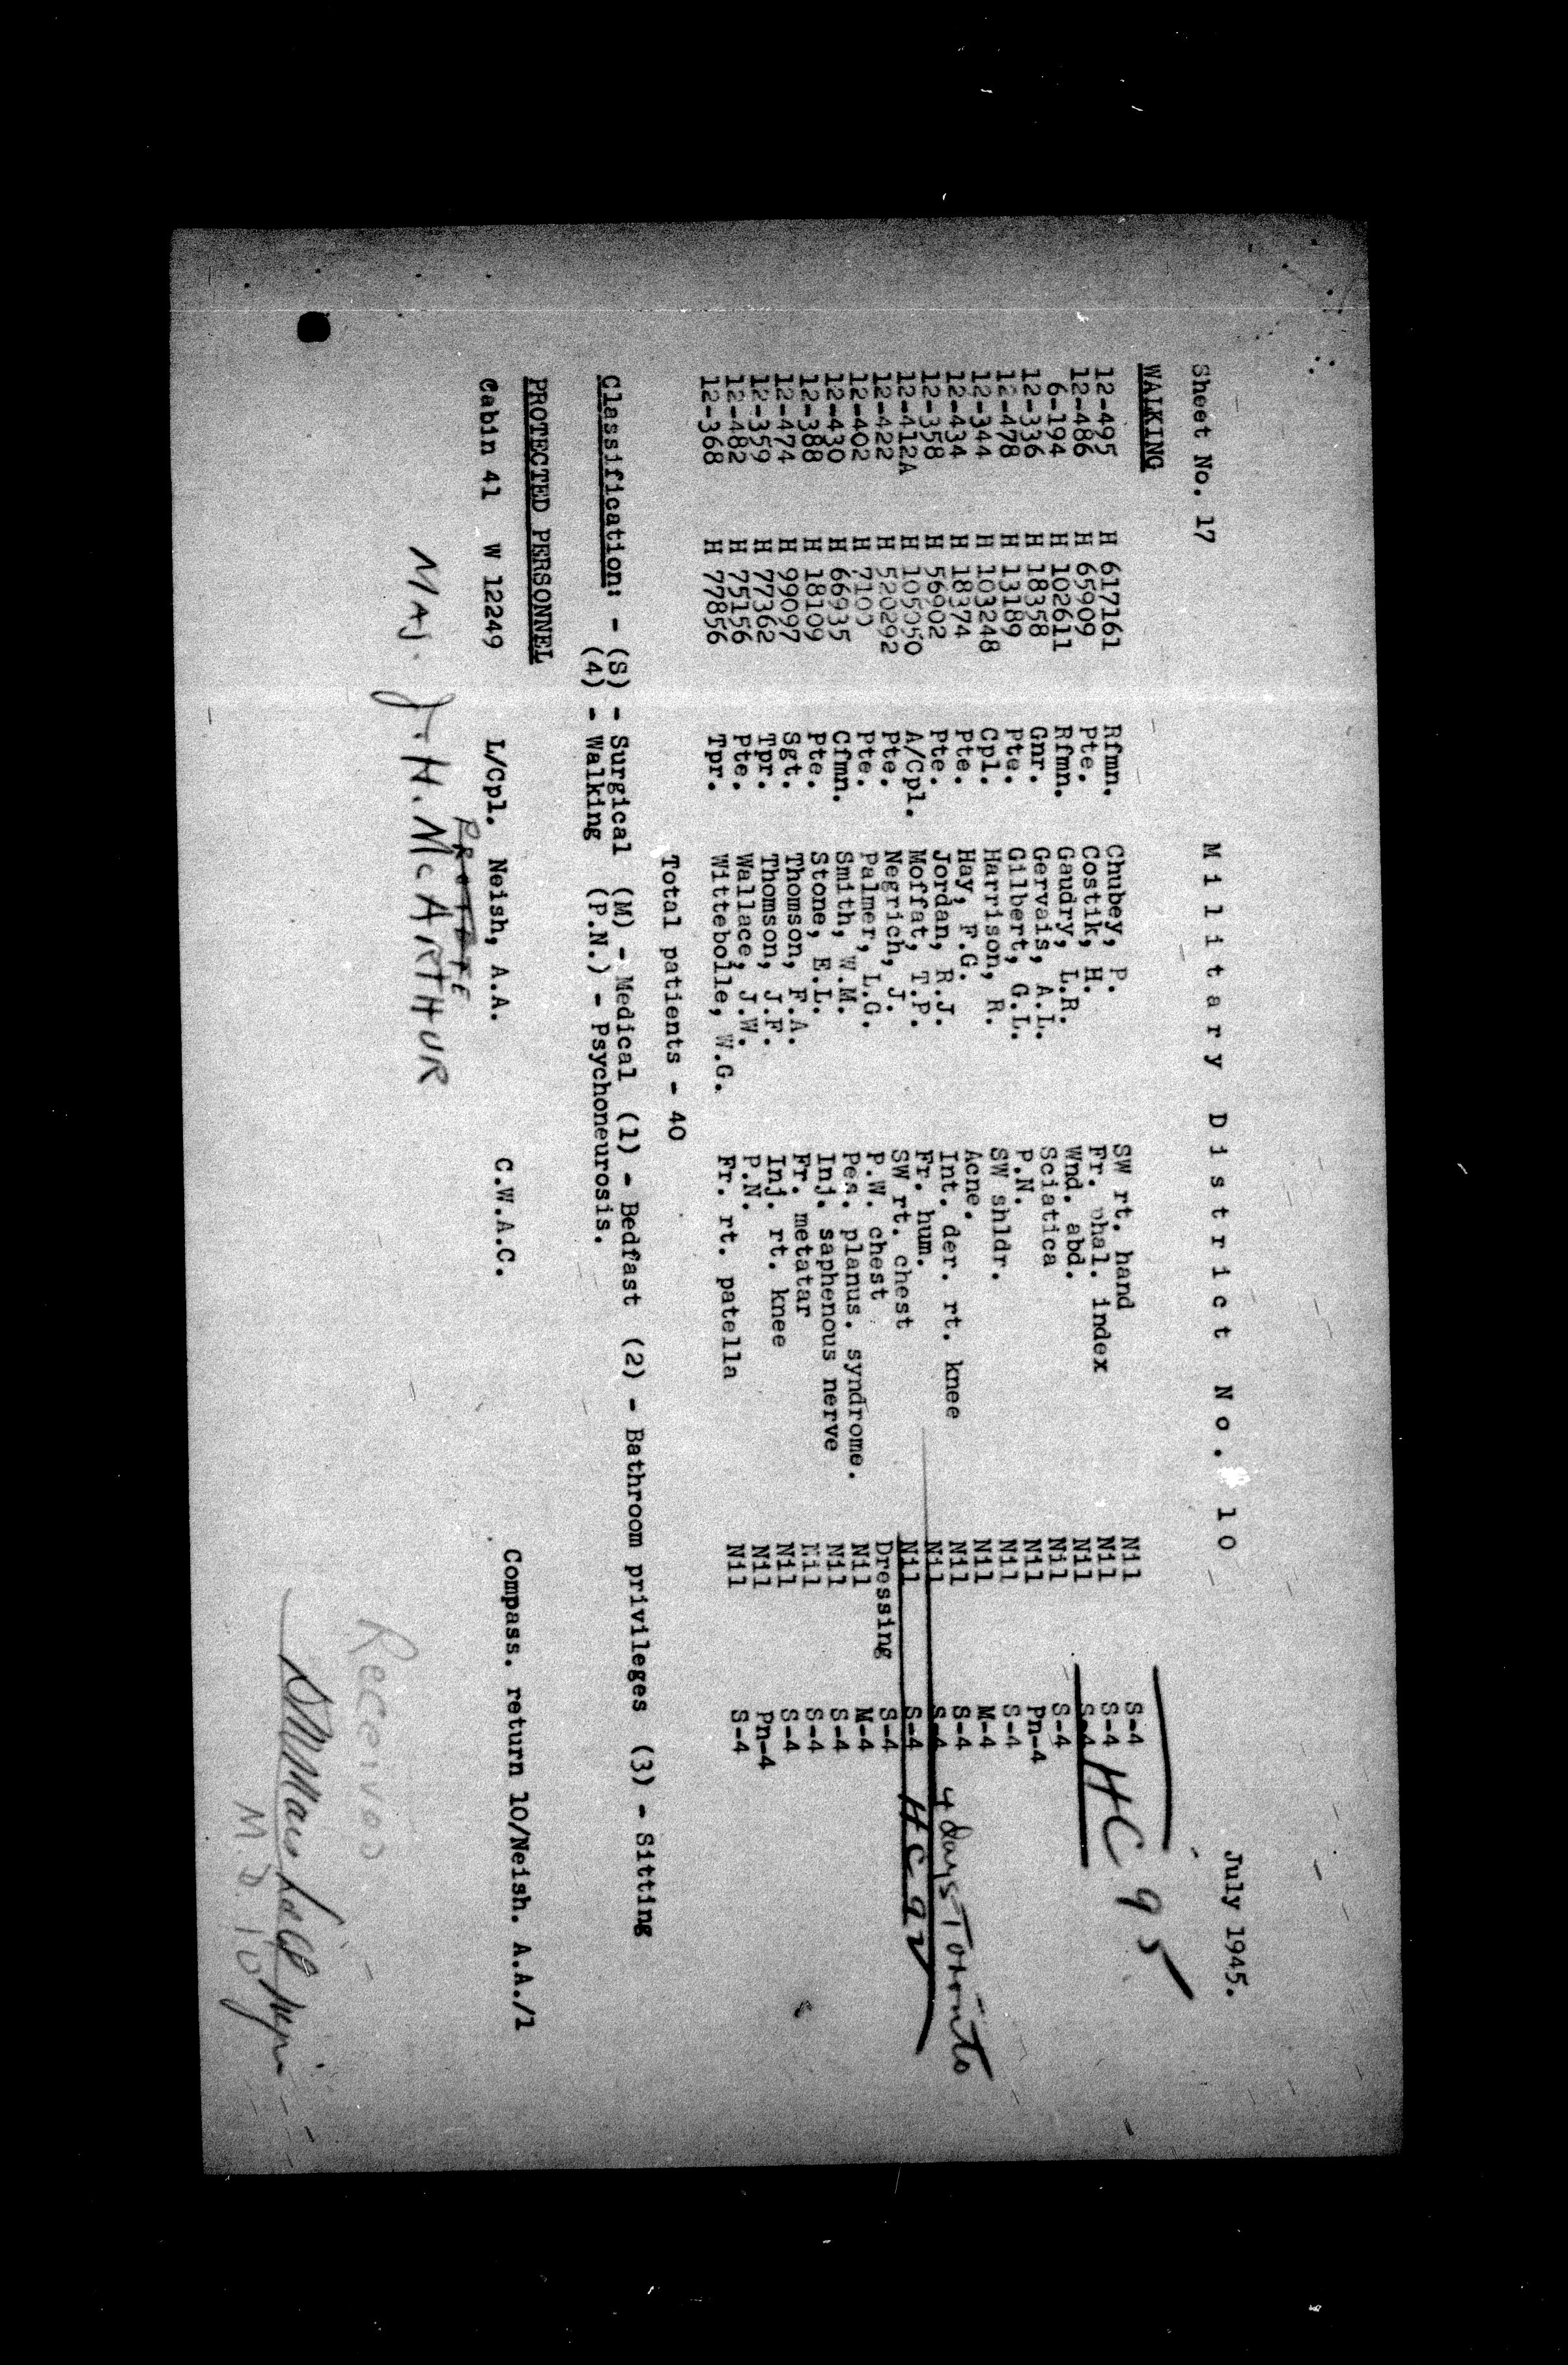 Sheet No. 17 Military District No. 10 July 1945.
WALKING
12-495 H 617161 Rfmn. Chubey, P. SW rt. hand Nil S-4
12-486 H 65909 Pte. Costik, H. Fr. phal. index Nil S-4 HC 95
6-194 H 102611 Rfmn. Gaudry, L.R. Wnd. abd. Nil S-4
12-336 H 18358 Gnr. Gervais, A.L. Sciatica Nil S-4
12-478 H 13189 Pte. Gilbert, G.L. P.N. Nil Pn-4
12-344 H 103248 Cpl. Harrison, R. SW shldr. Nil S-4
12-434 H 18374 Pte. Hay, F.G. Acne. Nil M-4
12-358 H 56902 Pte. Jordan, R.J. Int. der. rt. knee Nil S-4
12-412A H 105050 A/Cpl. Moffat, T.P. Fr. hum. Nil S-4 4 days Toronto
12-422 H 520292 Pte. Negrich, J. SW rt. chest Nil S-4 HC 92
12-402 H 7100 Pte. Palmer, L.G. P.W. chest Dressing S-4
12-430 H 66935 Cfmn. Smith, W.M. Pes. planus. syndrome. Nil M-4
12-388 H 18109 Pte. Stone, E.L. Inj. saphenous nerve Nil S-4
12-474 H 99097 Sgt. Thomson, F.A. Fr. metatar Nil S-4
12-359 H 77362 Tpr. Thomson, J.F. Inj. rt. knee Nil S-4
12-482 H 75156 Pte. Wallace, J.W. P.N. Nil Pn-4
12-368 H 77856 Tpr. Wittebolle, W.G. Fr. rt. patella Nil S-4
Total patients - 40
Classification: - (S) - Surgical (M) - Medical (1) - Bedfast (2) - Bathroom privileges (3) - Sitting
(4) - Walking (P.N.) - Psychoneurosis.
PROTECTED PERSONNEL
Cabin 41 W 12249 L/Cpl. Neish, A.A. C.W.A.C. Compass. return 10/Neish. A.A./1
MAJ. J.H. McARTHUR
Received
M D 10